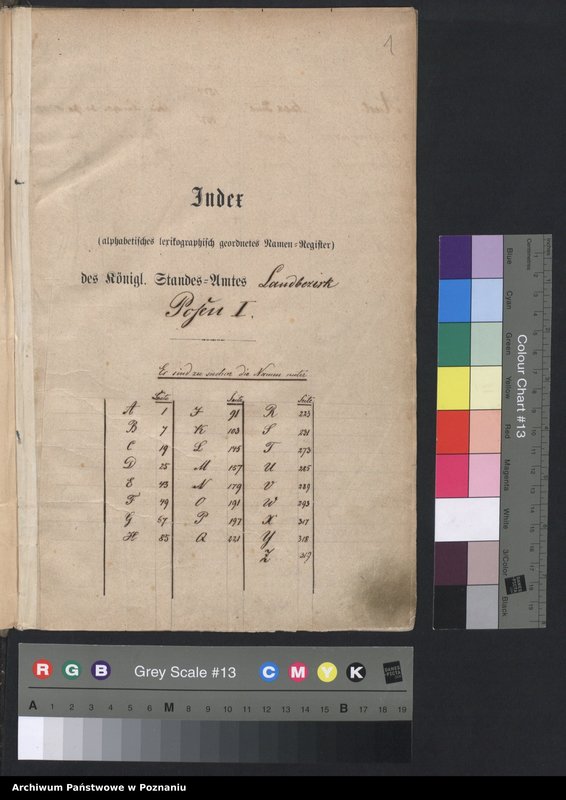 1
Index
(alphabetisches lexikographisch geordnetes Namen=Register)
des Königl. Standes=Amtes Landbezirk
Posen I.
Es sind zu suchen die Namen unter
Seite Seite Seite
A 1 J 91 R 223
B 7 K 103 S 231
C 19 L 145 T 273
D 25 M 157 U 285
E 43 N 179 V 289
F 49 O 191 W 293
G 67 P 197 X 317
H 85 Q 221 Y 318
Z 319
Colour Chart #13
Blue
Cyan
Green
Yellow
Red
Magenta
White
3/Color
Black
Centimetres
Inches
R G B Grey Scale #13 C M Y K
A 1 2 3 4 5 6 M 8 9 10 11 12 13 14 15 B 17 18 19
Archiwum Państwowe w Poznaniu